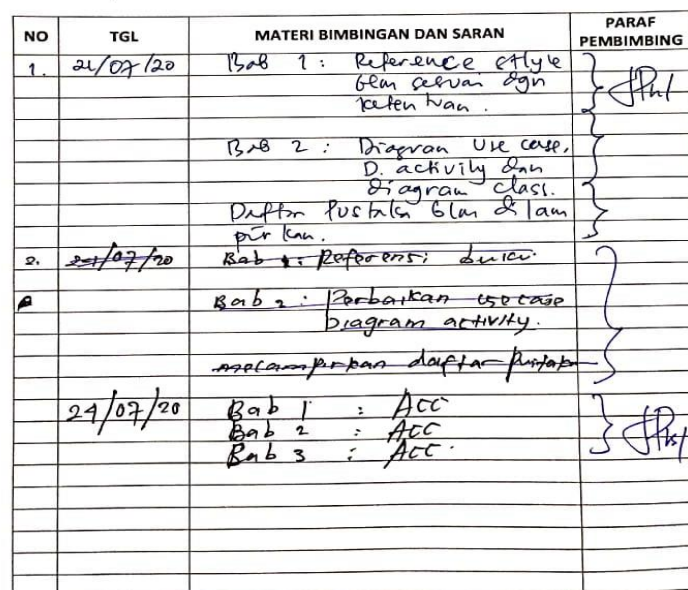 NO TGL MATERI BIMBINGAN DAN SARAN PARAF PEMBIMBING
1. 21/07/20 Bab 1 : Reference style
blm sesuai dgn
ketentuan.
Bab 2 : Diagram Use case,
D. activity dan
diagram class.
Daftar Pustaka blm di lam
pirkan.
2. /07/20 Bab 1 : Referensi buku.
Bab 2 : Perbaikan usecase
Diagram activity.
melampirkan daftar pustaka
24/07/20 Bab 1 : ACC
Bab 2 : ACC
Bab 3 : ACC.